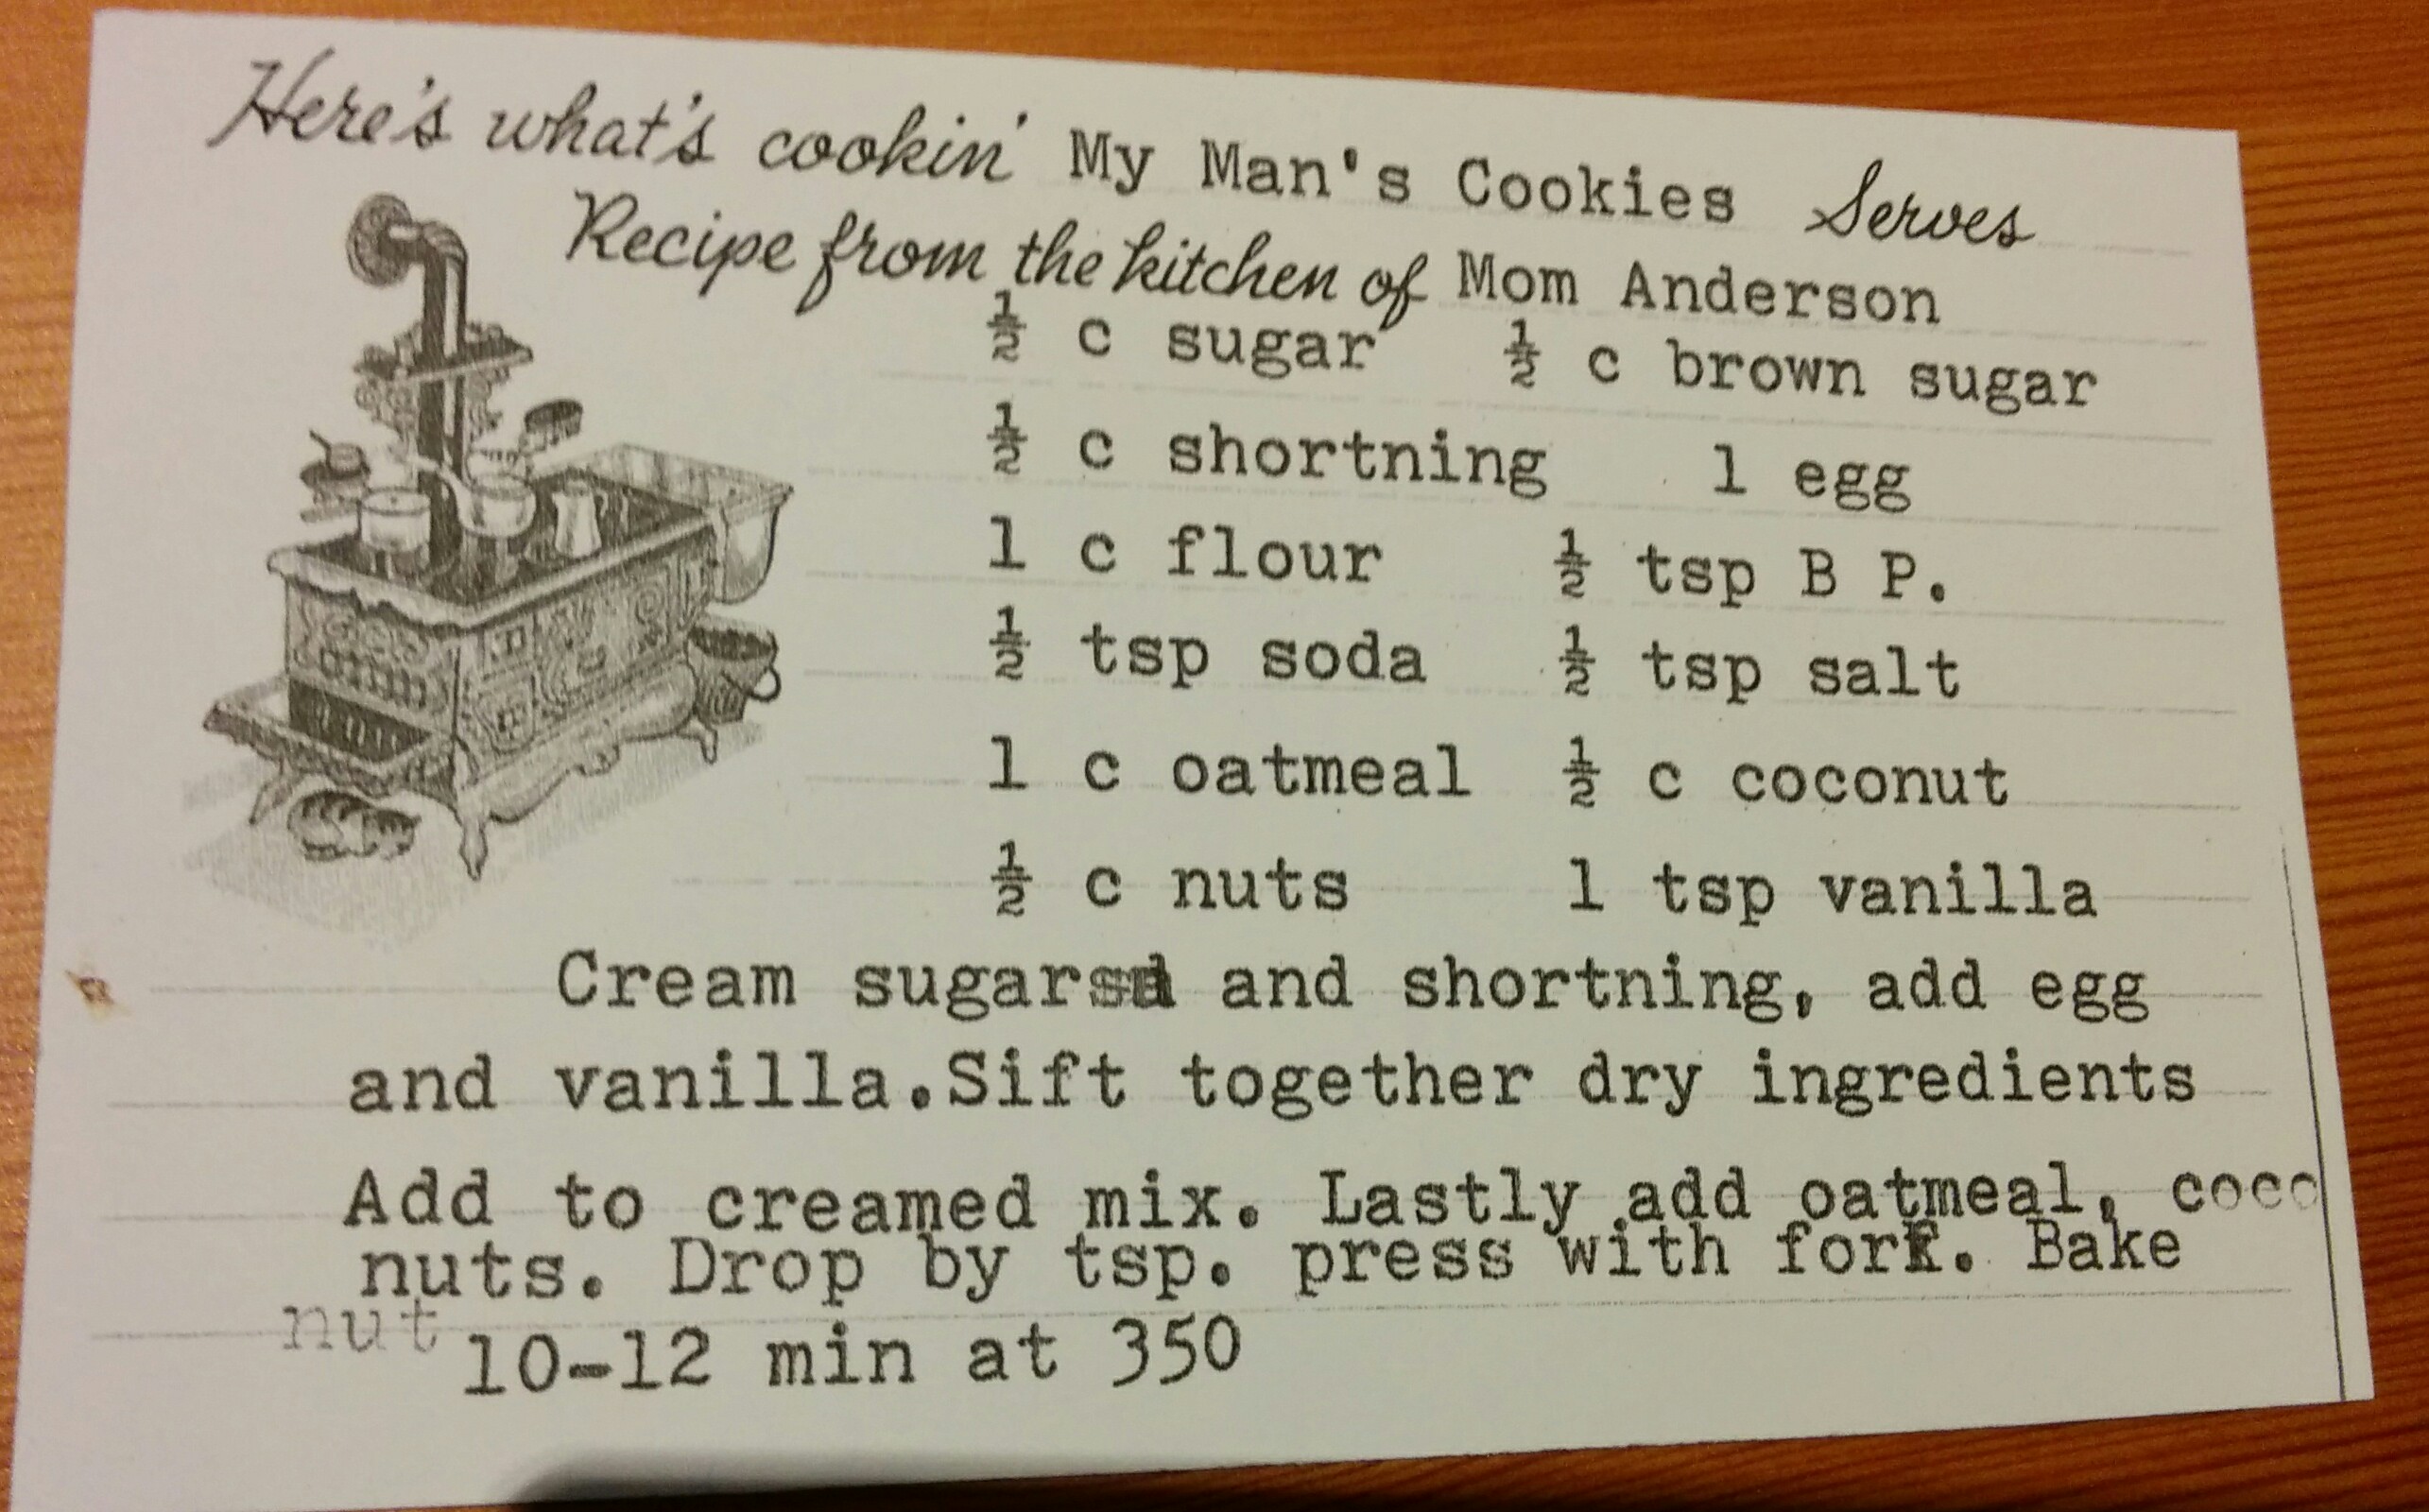 Here's what's cookin' My Man's Cookies Serves
Recipe from the kitchen of Mom Anderson
½ c sugar ½ c brown sugar
½ c shortning 1 egg
1 c flour ½ tsp B P.
½ tsp soda ½ tsp salt
1 c oatmeal ½ c coconut
½ c nuts 1 tsp vanilla
Cream sugars and shortning, add egg
and vanilla.Sift together dry ingredients
Add to creamed mix. Lastly add oatmeal, coco
nuts. Drop by tsp. press with fork. Bake
nut
10-12 min at 350